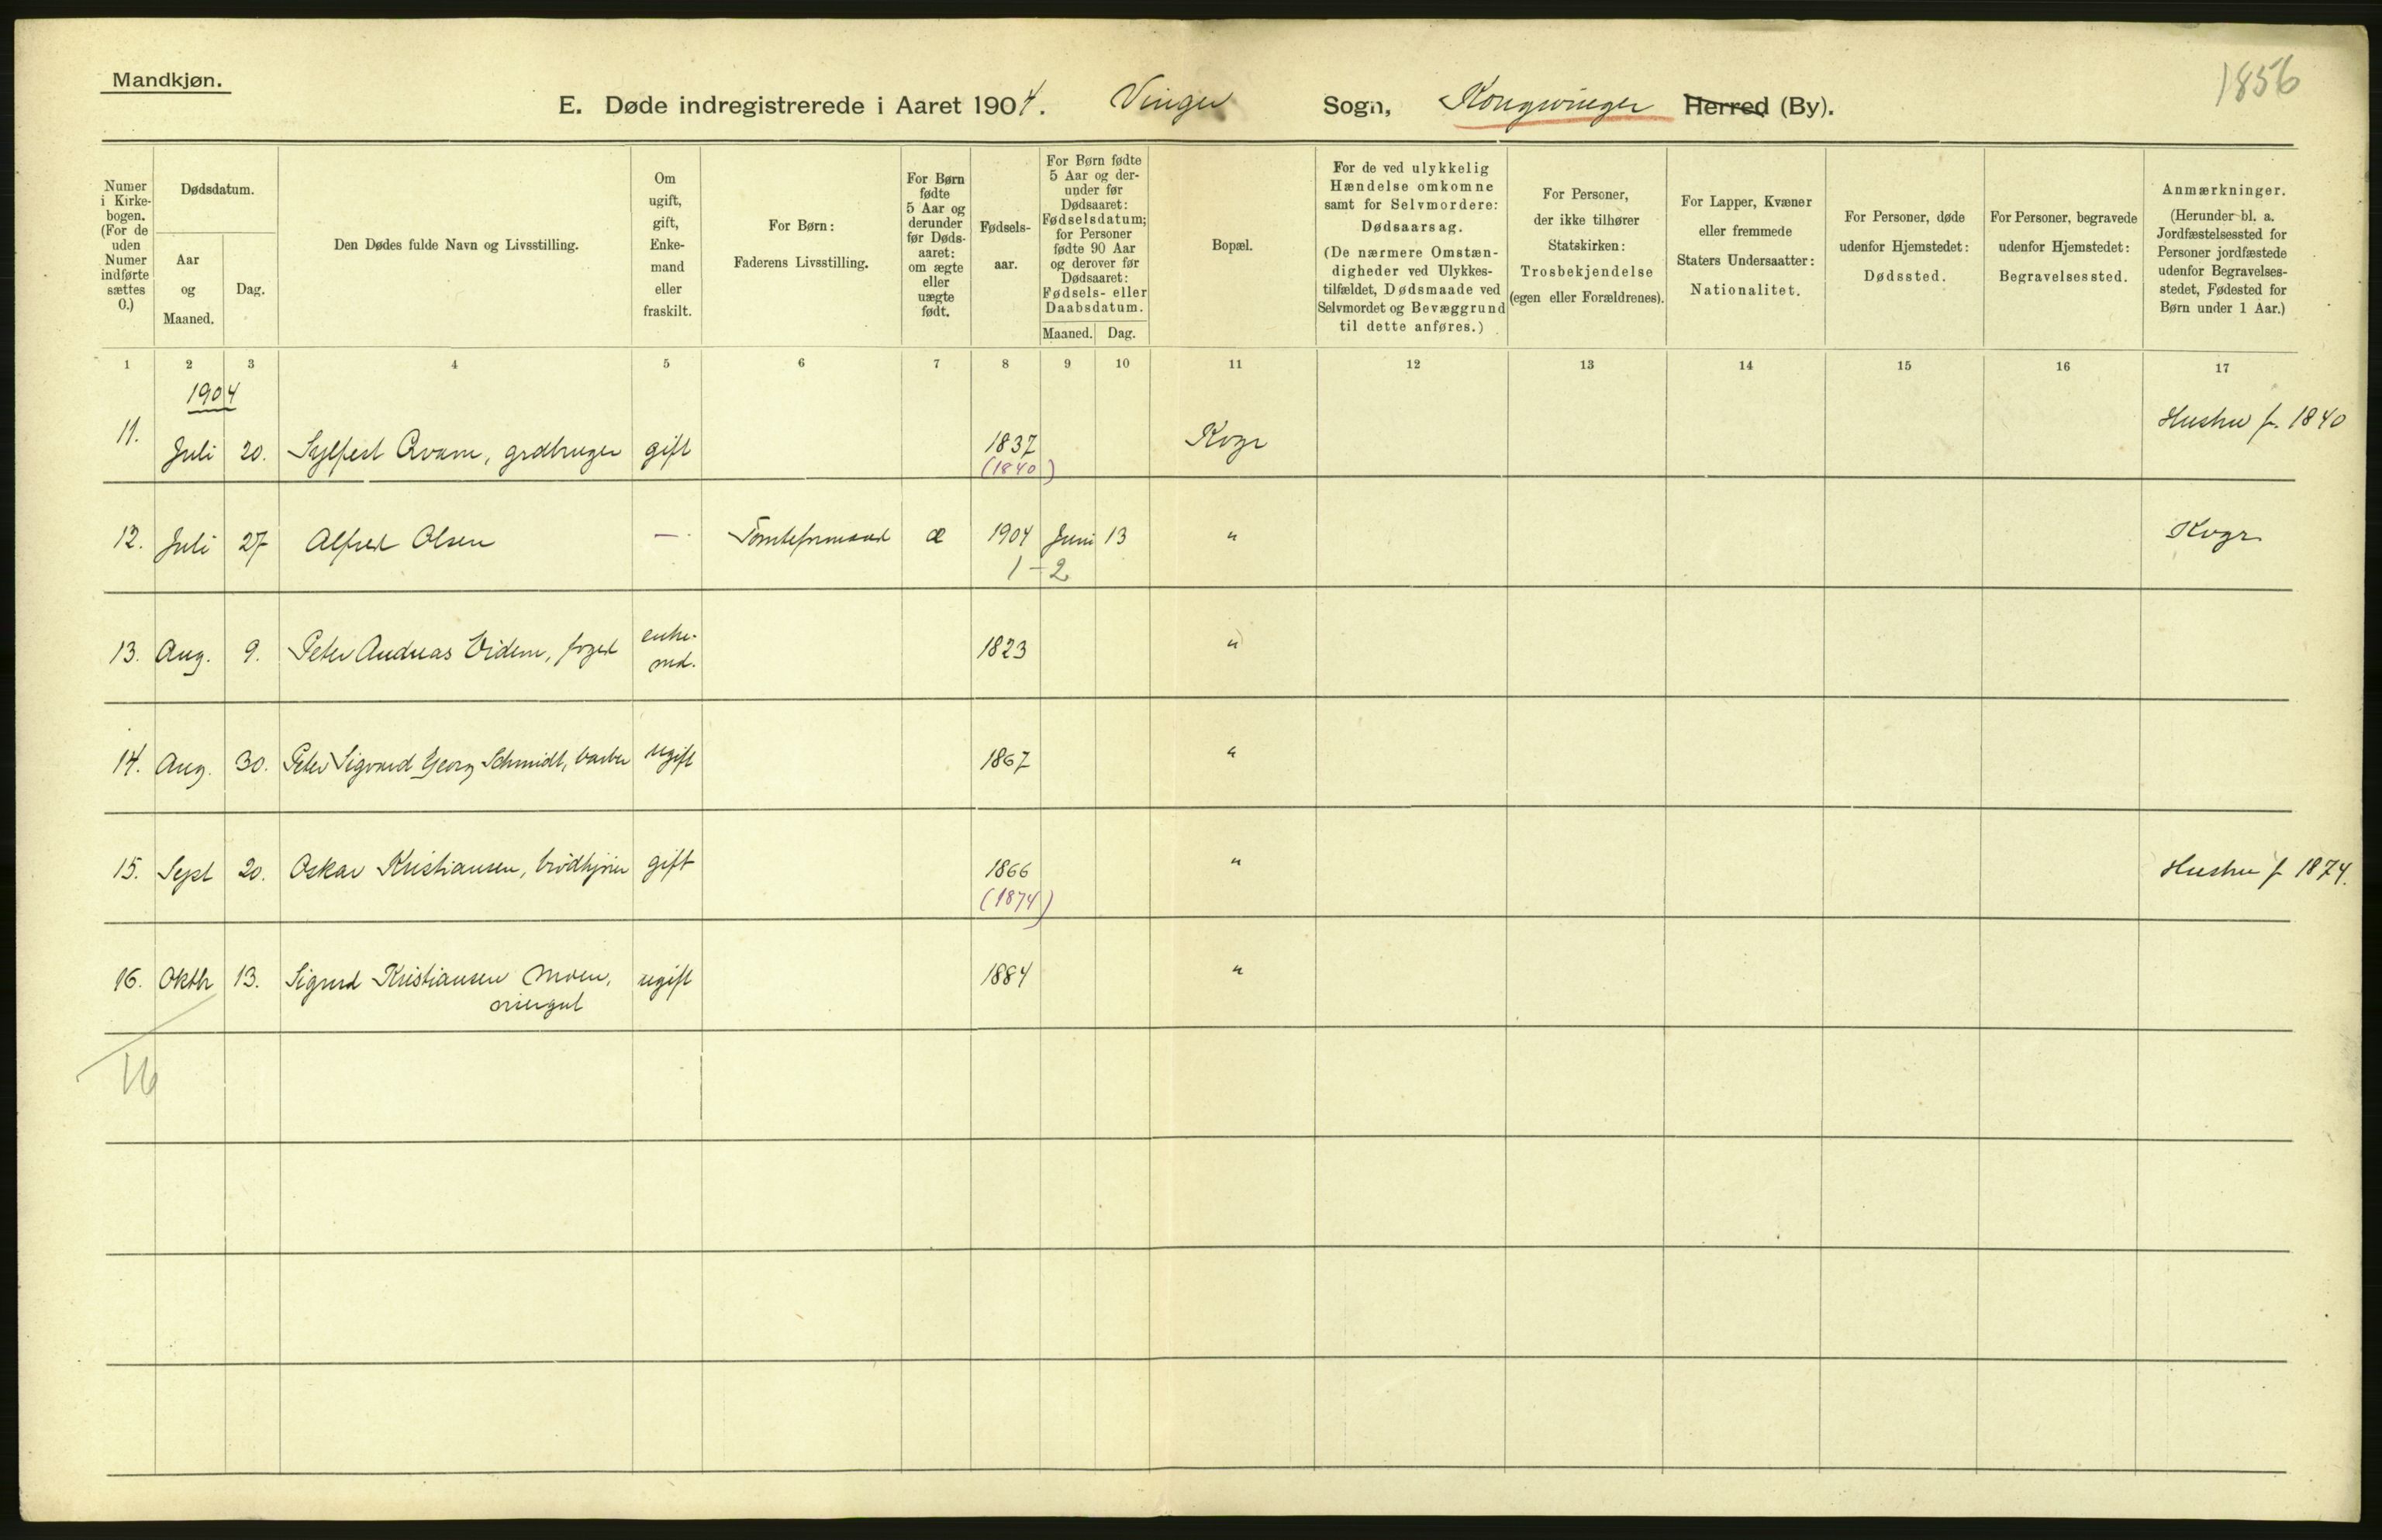 Mandkjøn.
1856
E. Døde indregistrerede i Aaret 1904. Vinger Sogn, Kongsvinger Herred (By).
Numer i Kirke-bogen. (For de uden Numer indførte sættes 0.)
Dødsdatum.
Aar og Maaned.
Dag.
Den Dødes fulde Navn og Livsstilling.
Om ugift, gift, Enke-mand eller fraskilt.
For Børn:
Faderens Livsstilling.
For Børn fødte 5 Aar og derunder før Døds-aaret: om ægte eller uægte født.
Fødsels-aar.
For Børn fødte 5 Aar og der-under før Dødsaaret: Fødselsdatum; for Personer fødte 90 Aar og derover før Dødsaaret: Fødsels- eller Daabsdatum.
Maaned. Dag.
Bopæl.
For de ved ulykkelig Hændelse omkomne samt for Selvmordere: Dødsaarsag.
(De nærmere Omstæn-digheder ved Ulykkes-tilfældet, Dødsmaade ved Selvmordet og Bevæggrund til dette anføres.)
For Personer, der ikke tilhører Statskirken: Trosbekjendelse (egen eller Forældrenes).
For Lapper, Kvæner eller fremmede Staters Undersaatter: Nationalitet.
For Personer, døde udenfor Hjemstedet: Dødssted.
For Personer, begravede udenfor Hjemstedet: Begravelsessted.
Anmærkninger. (Herunder bl. a. Jordfæstelsessted for Personer jordfæstede udenfor Begravelses-stedet, Fødested for Børn under 1 Aar.)
1 2 3 4 5 6 7 8 9 10 11 12 13 14 15 16 17
1904
11. Juli 20. Sylfest Qvam, grdbruger gift 1837 Kvgr Hustru f. 1840
(1840)
12. Juli 27 Alfred Olsen — Tomteformand æ 1904 Juni 13 " Kvgr.
1-2
13. Aug. 9. Peter Andreas foged enke-md. 1823 "
14. Aug. 30. Peter Sigvard Georg Schmidt, barber ugift 1867 "
15. Sept 20. Oskar Kristiansen, gift 1866 " Hustru f 1874.
(1874)
16. Oktbr 13. Sigurd Kristiansen Moen, ugift 1884 "
visergut
16